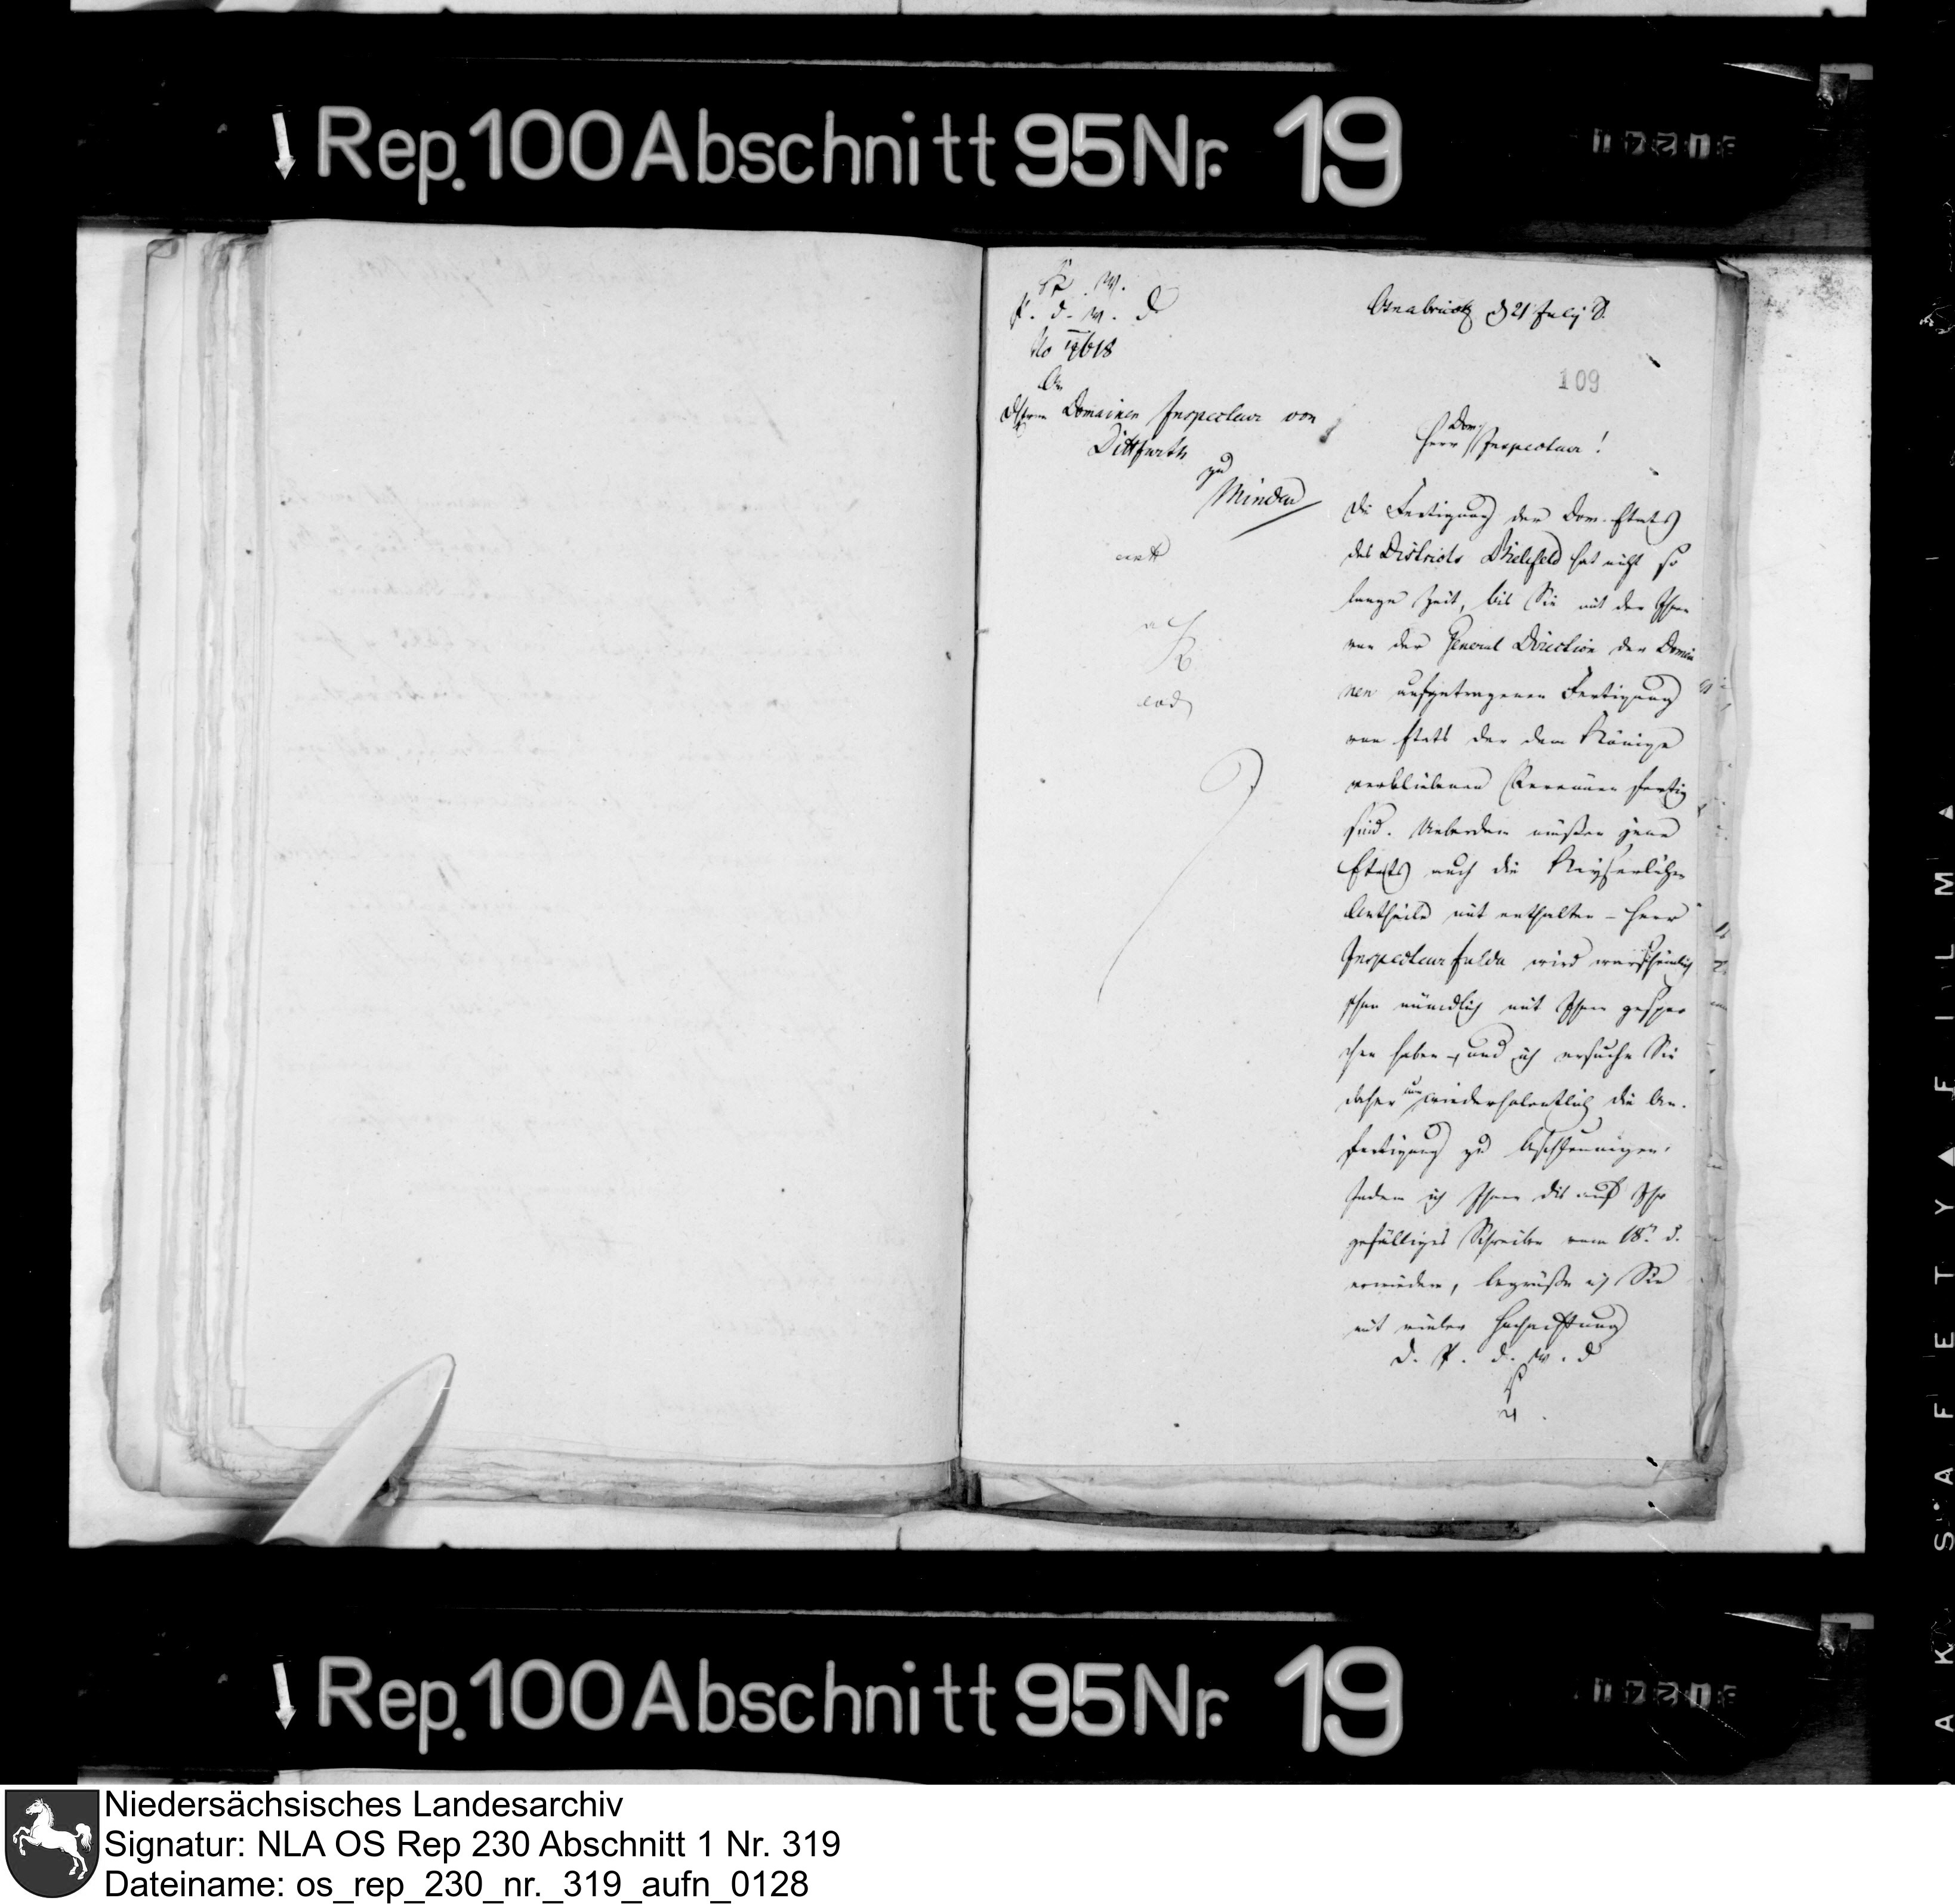 Rep. 100 Abschnitt 95 Nr. 19
K. W.
P. d. W. D
No 19618
An
Domainen Inspecteur von
Dittfurth
zu
Minden
Osnabrück d 21 July 8.
109
Herr Dom. Inspecteur!
Die Fertigung der Dom. Etats
des Districts Bielefeld hat nicht so
lange Zeit, bis Sie mit der Ihnen
von der General Direction der Domai
nen aufgetragenen Fertigung
von Etats der dem Könige
verbliebenen Revenüen fertig
sind. Ueberdem müßen jene
Etats auch die Kayserlichen
Antheile mit enthalten – Herr
Inspecteur Fulda wird warscheinlich
schon mündlich mit Ihnen gespro
chen haben –, und ich ersuche Sie
daher nun wiederholentlich die An-
fertigung zu beschleunigen.
Indem ich Ihnen dis auf Ihr
gefälliges Schreiben vom 18. d.
erwiedere, begrüße ich Sie
mit vieler Hochachtung
D. P. d. W. D
eod
Rep. 100 Abschnitt 95 Nr. 19
SAFETY FILM
Niedersächsisches Landesarchiv
Signatur: NLA OS Rep 230 Abschnitt 1 Nr. 319
Dateiname: os_rep_230_nr._319_aufn_0128